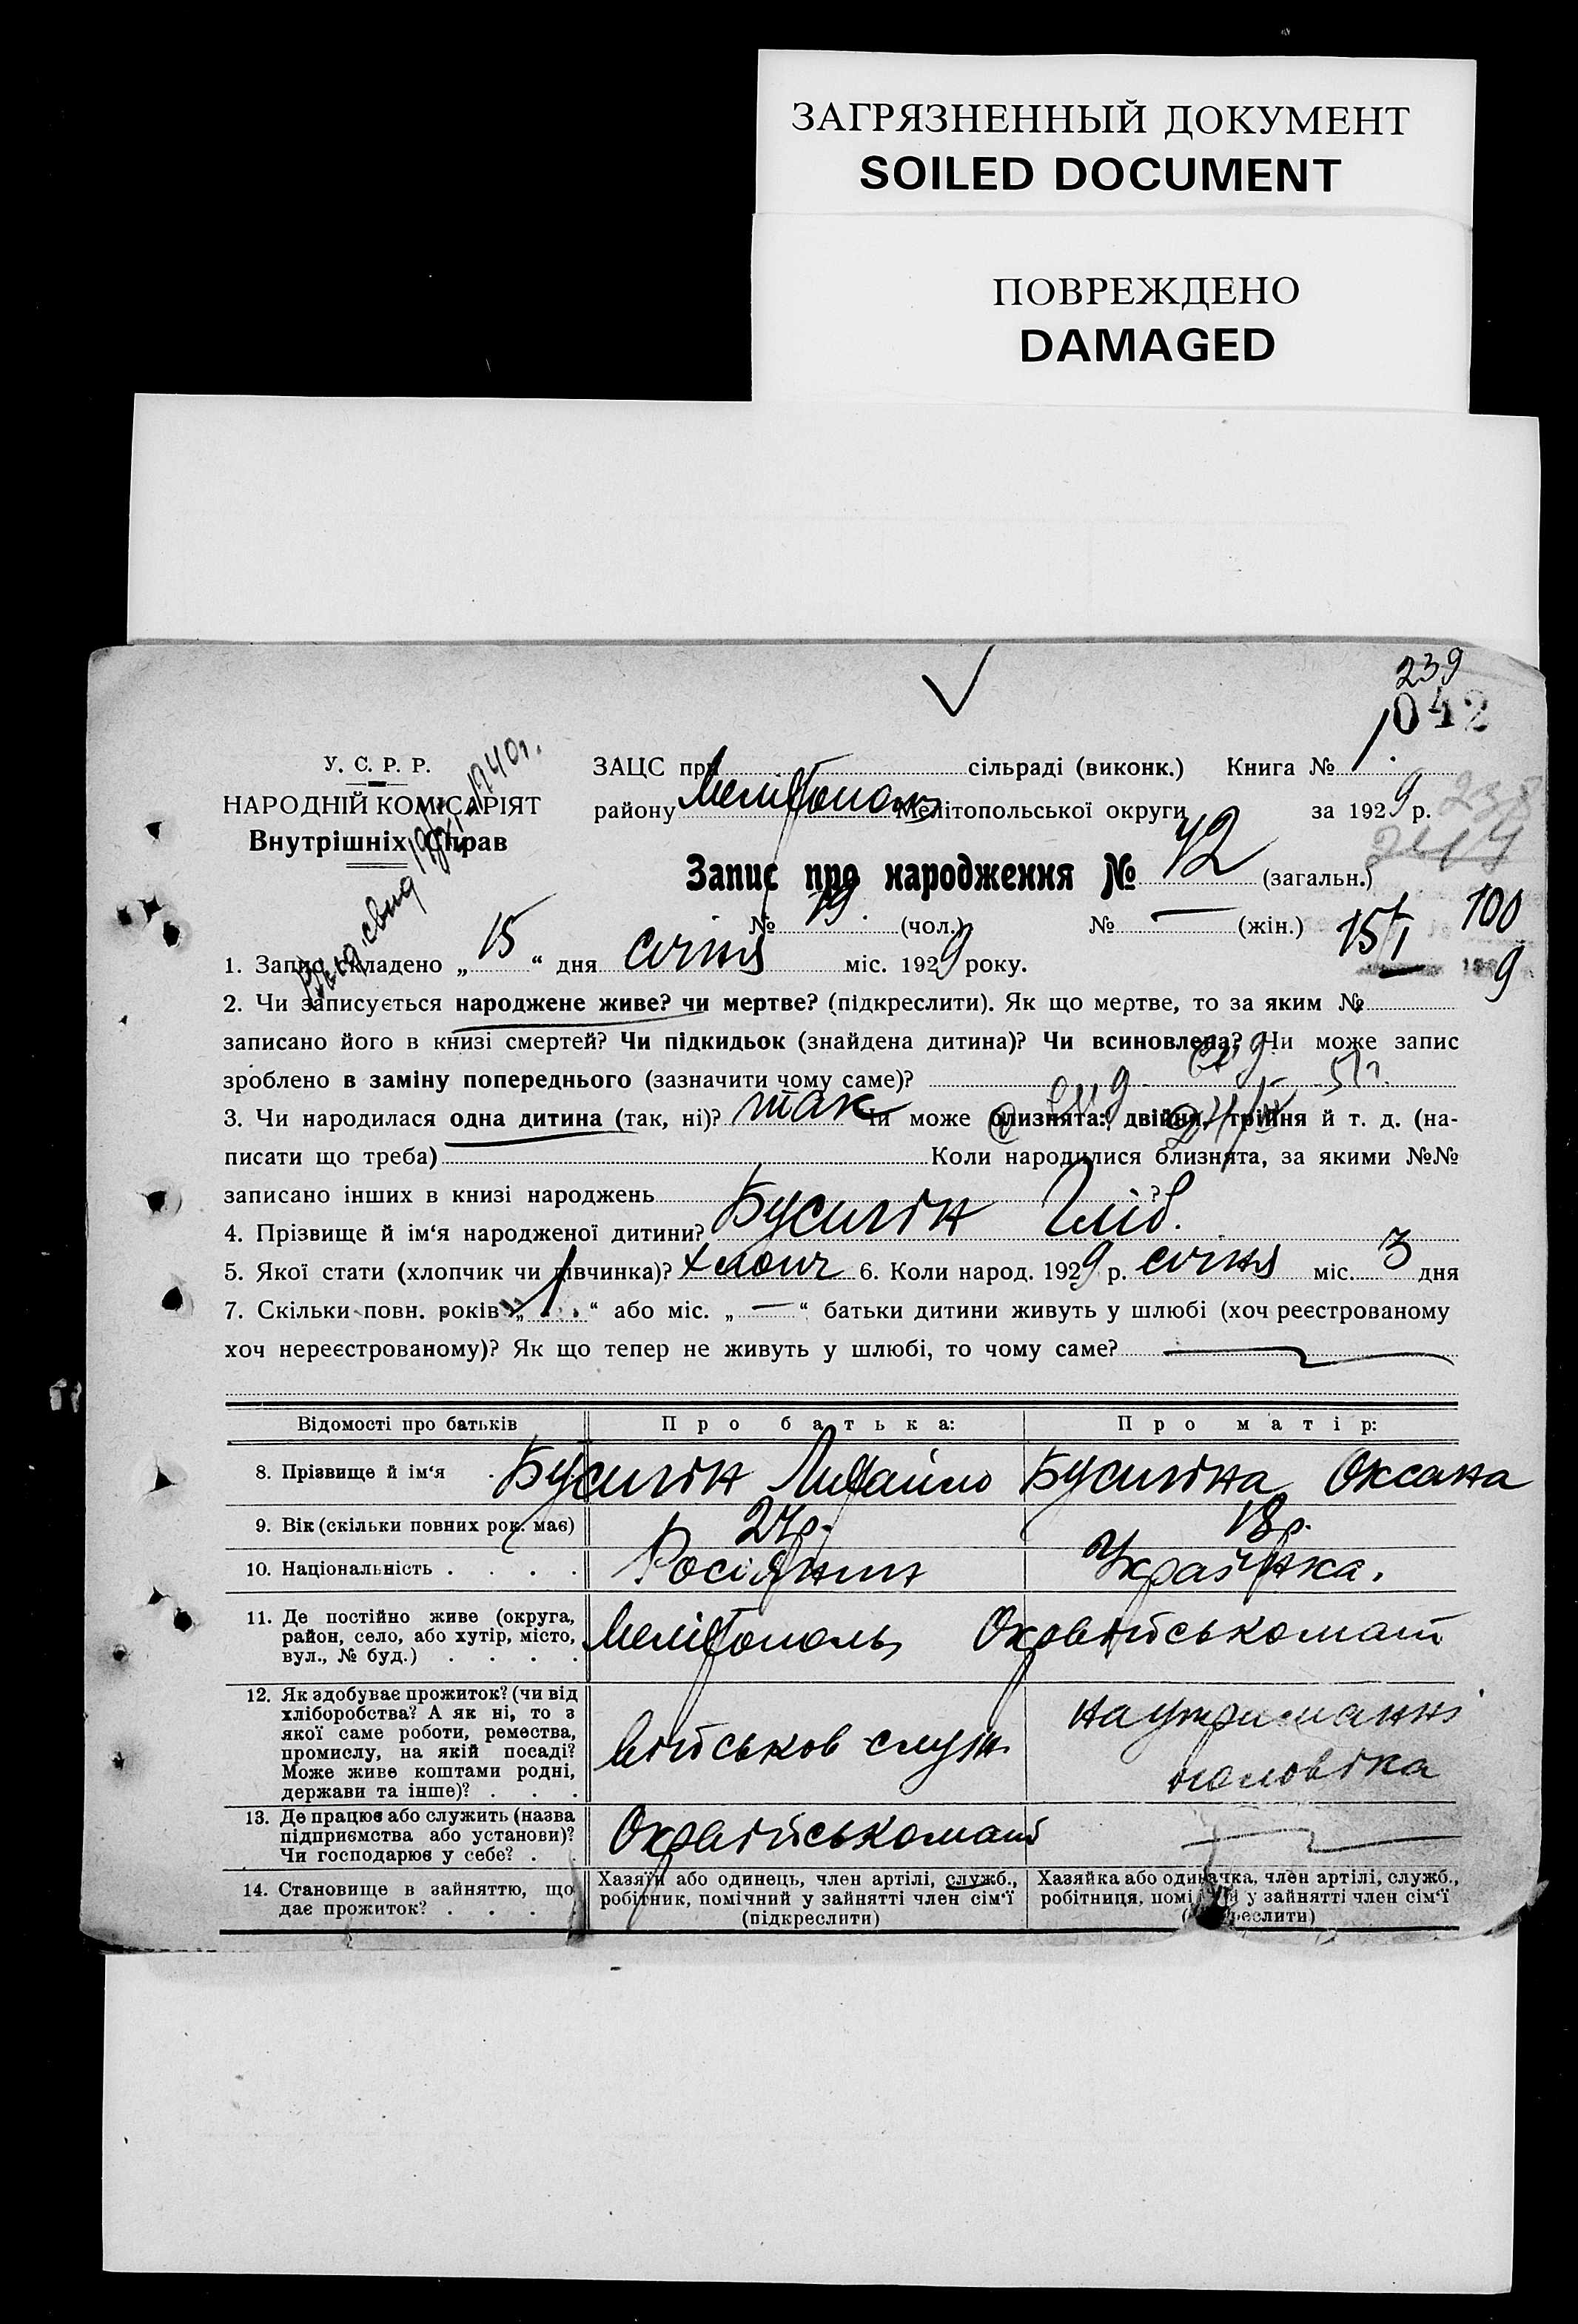 ЗАГРЯЗНЕННЫЙ ДОКУМЕНТ
SOILED DOCUMENT
ПОВРЕЖДЕНО
DAMAGED
239
042
У. С. Р. Р.
НАРОДНІЙ КОМІСАРІЯТ
Внутрішніх Справ
ЗАЦС при сільраді (виконк.) Книга № 1.
району Мелітополь Мелітопольської округи за 1929 р.
238
Запис про народження № 42 (загальн.)
№ 19. (чол.) № — (жін.)
15/I 100
9
1. Запис складено „ 15 “ дня січня міс. 1929 року.
2. Чи записується народжене живе? чи мертве? (підкреслити). Як що мертве, то за яким №
записано його в книзі смертей? Чи підкидьок (знайдена дитина)? Чи всиновлена? Чи може запис
зроблено в заміну попереднього (зазначити чому саме)?
3. Чи народилася одна дитина (так, ні)? так чи може близнята: двійня, трійня й т. д. (на-
писати що треба) Коли народилися близнята, за якими №№
записано інших в книзі народжень ?
4. Прізвище й ім‘я народженої дитини? Бусигін Гліб.
5. Якої стати (хлопчик чи дівчинка)? хлопч 6. Коли народ. 1929 р. січня міс. 3 дня
7. Скільки повн. років „ 1 “ або міс. „ — “ батьки дитини живуть у шлюбі (хоч реєстрованому
хоч нереєстрованому)? Як що тепер не живуть у шлюбі, то чому саме?
Відомості про батьків Про батька: Про матір:
8. Прізвище й ім‘я . Бусигін Михайло Бусигіна Оксана
9. Вік (скільки повних рок. має) 27 р. 18 р.
10. Національність . . . . Росіянин Українка.
11. Де постійно живе (округа,
район, село, або хутір, місто,
вул., № буд.) . . . .
Мелітополь Окрвійськомат
12. Як здобуває прожиток? (чи від
хліборобства? А як ні, то з
якої саме роботи, ремества,
промислу, на якій посаді?
Може живе коштами родні,
держави та інше)? . . .
військов служ.
на утриманні
чоловіка
13. Де працює або служить (назва
підприємства або установи)?
Чи господарює у себе? . .
Окрвійськомат
14. Становище в зайняттю, що
дає прожиток? . . . .
Хазяїн або одинець, член артілі, служб.,
робітник, помічний у зайнятті член сім‘ї
(підкреслити)
Хазяйка або одиначка, член артілі, служб.,
робітниця, поміч у зайнятті член сім‘ї
(підкреслити)